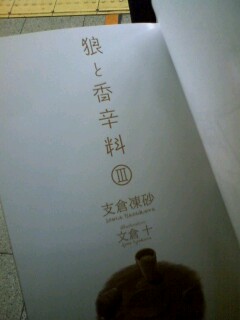 狼と香辛料
Ⅲ
支倉凍砂
Isuna Hasekura
文倉十